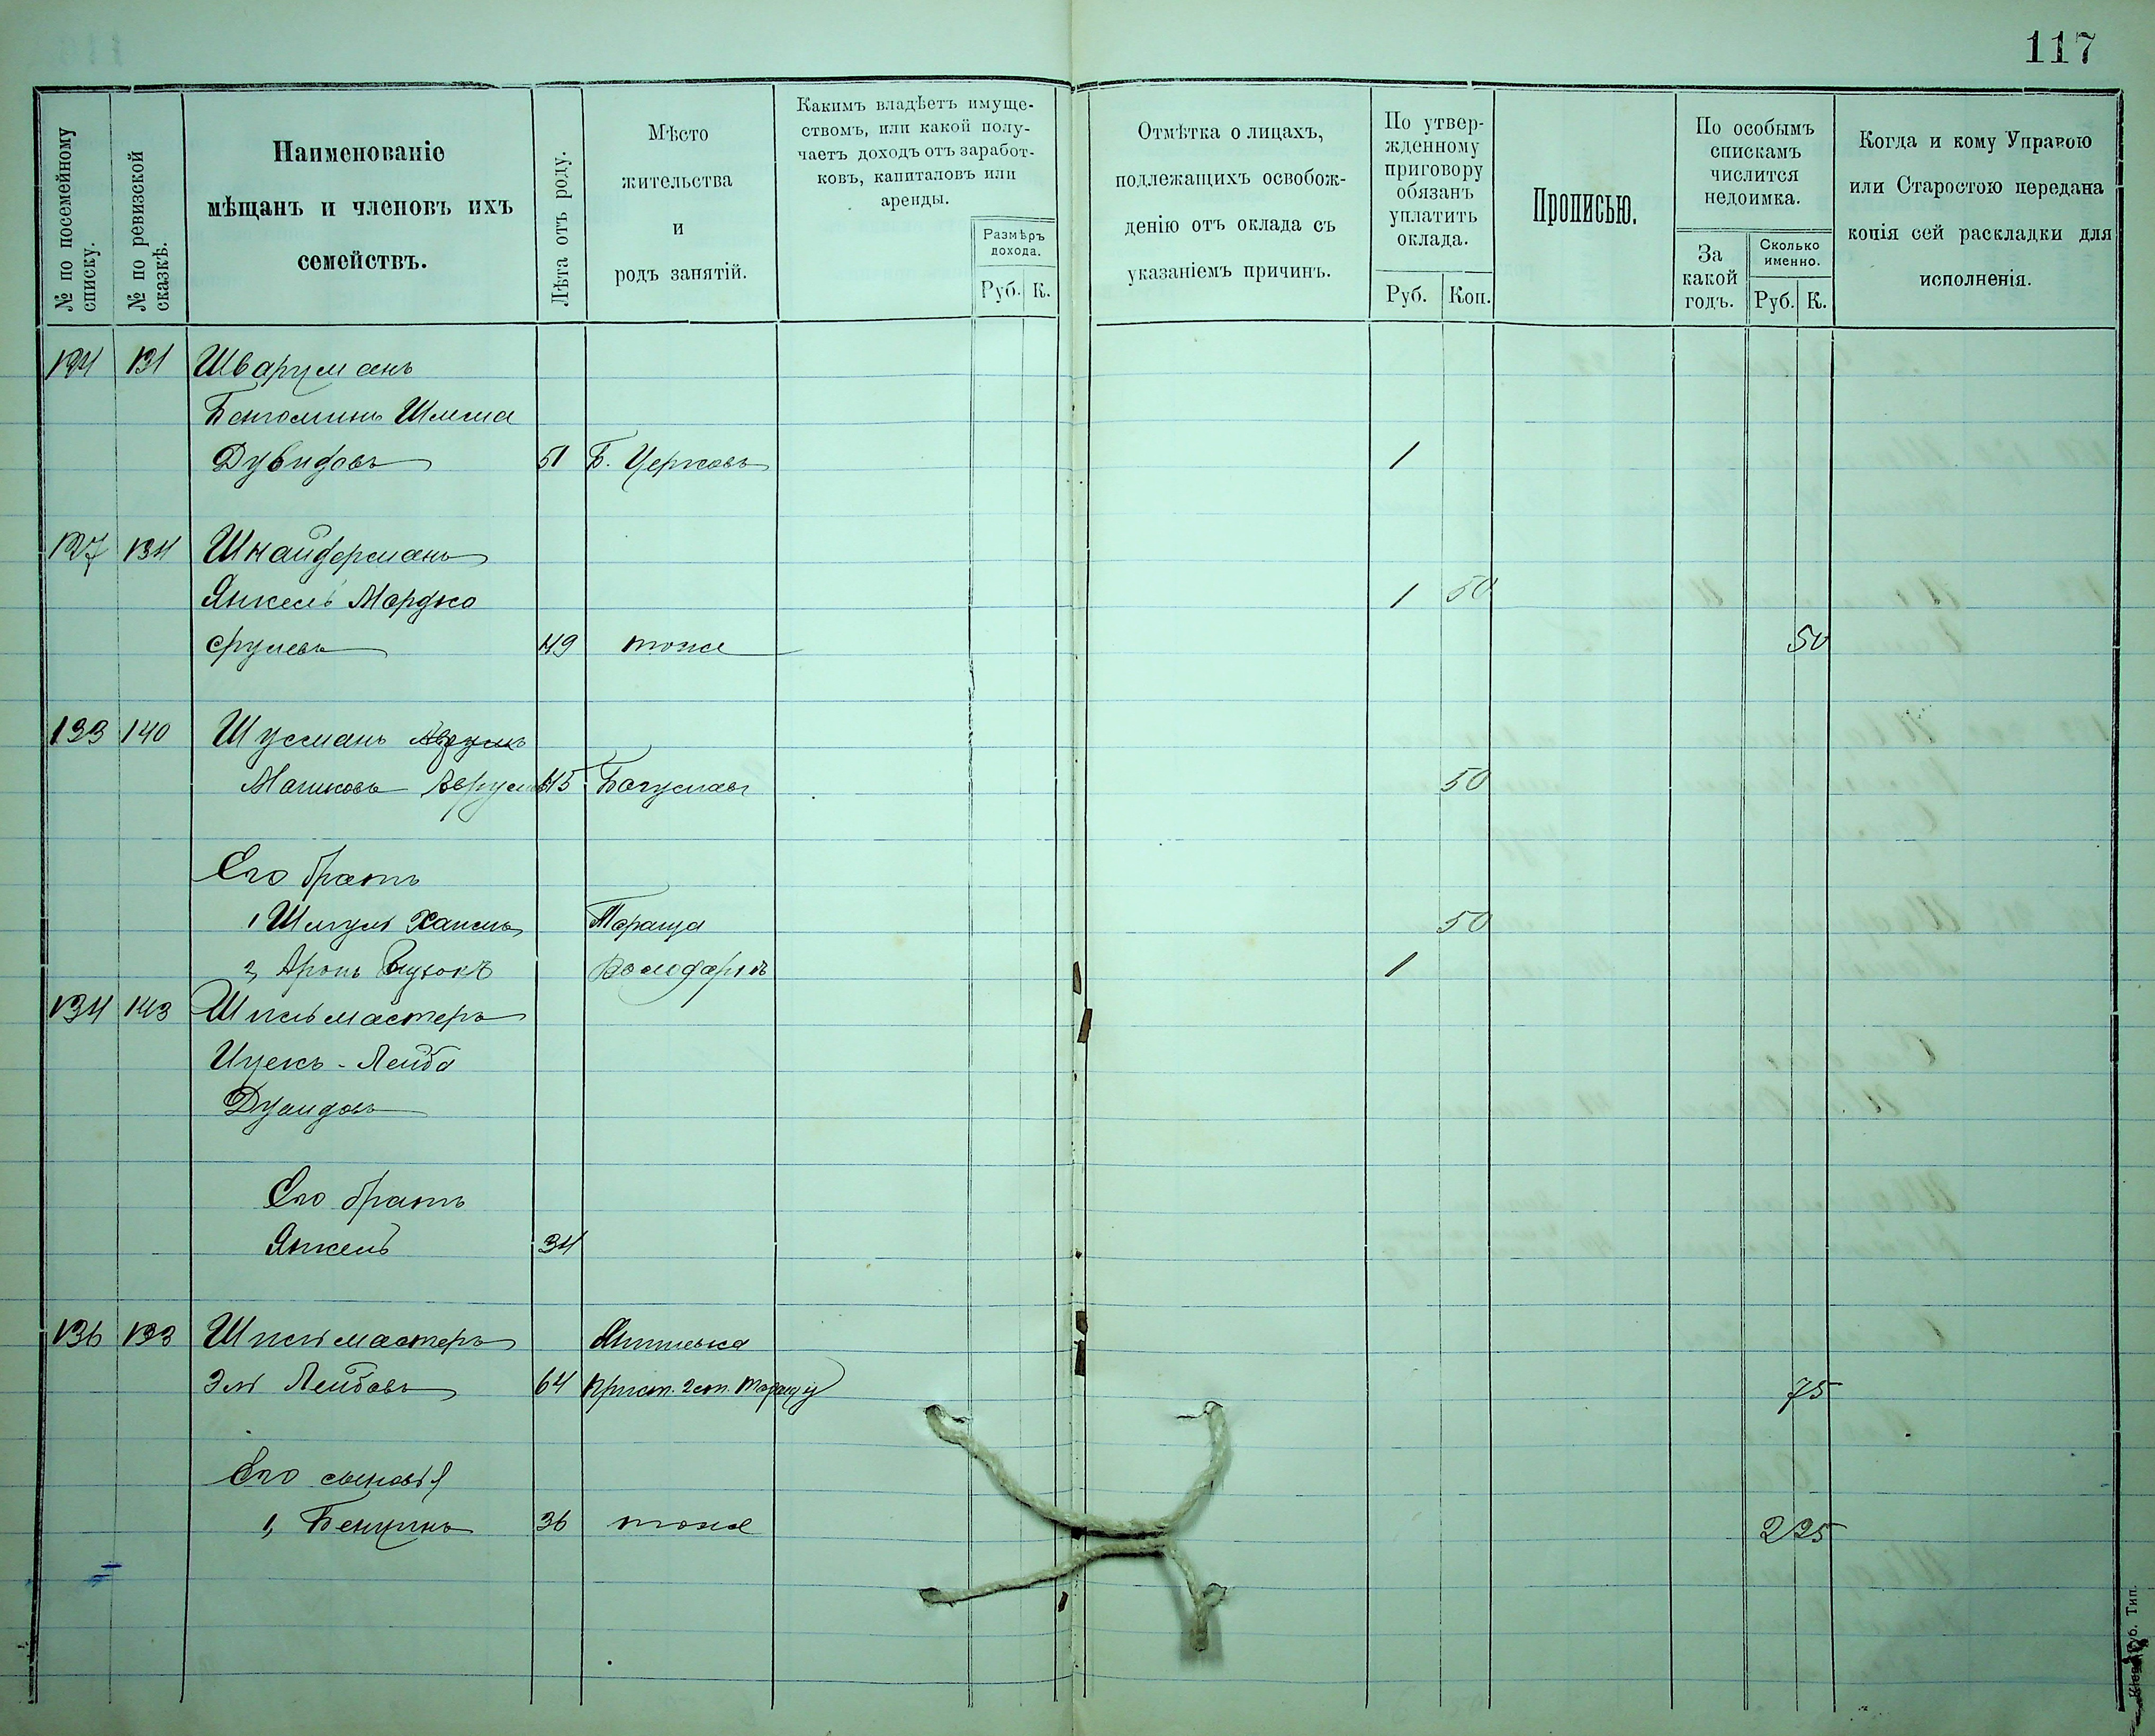 117
№ по посемейному списку.
№ по ревизской сказкѣ.
Наименованіе
мѣщанъ и членовъ ихъ
семействъ.
Лѣта отъ роду.
Мѣсто
жительства
и
родъ занятій.
Какимъ владѣетъ имуще-
ствомъ, или какой полу-
чаетъ доходъ отъ заработ-
ковъ, капиталовъ или
аренды.
Размѣръ
дохода.
Руб. К.
Отмѣтка о лицахъ,
подлежащихъ освобож-
денію отъ оклада съ
указаніемъ причинъ.
По утвер-
жденному
приговору
обязанъ
уплатить
оклада.
Руб. Коп.
Прописью.
По особымъ
спискамъ
числится
недоимка.
За
какой
годъ.
Сколько
именно.
Руб. К.
Когда и кому Управою
или Старостою передана
копія сей раскладки для
исполненія.
124 131 Шварцманъ
Бенюминъ Шлема
Дувидовъ 51 Б. Церковь 1
127 134 Шнайдерманъ
Янкель Мордко 1 50
Срулевъ 49 тоже 50
133 140 Шусманъ Аврумъ
Мошковъ Аврумъ 45 Богуславъ 50
Его братъ
1 Шмуль Хаимъ Тараща 50
2, Аронъ Володарк 1
134 143 Шпильмастеръ
Ицекъ-Лейба
Дувидовъ
Его братъ
Янкель 34
136 133 Шпильмастеръ
Эль Лейбовъ 64 Прист. 2 ст. Таращ у 75
Его сыновья
1, Бенционъ 36 тоже 2 25